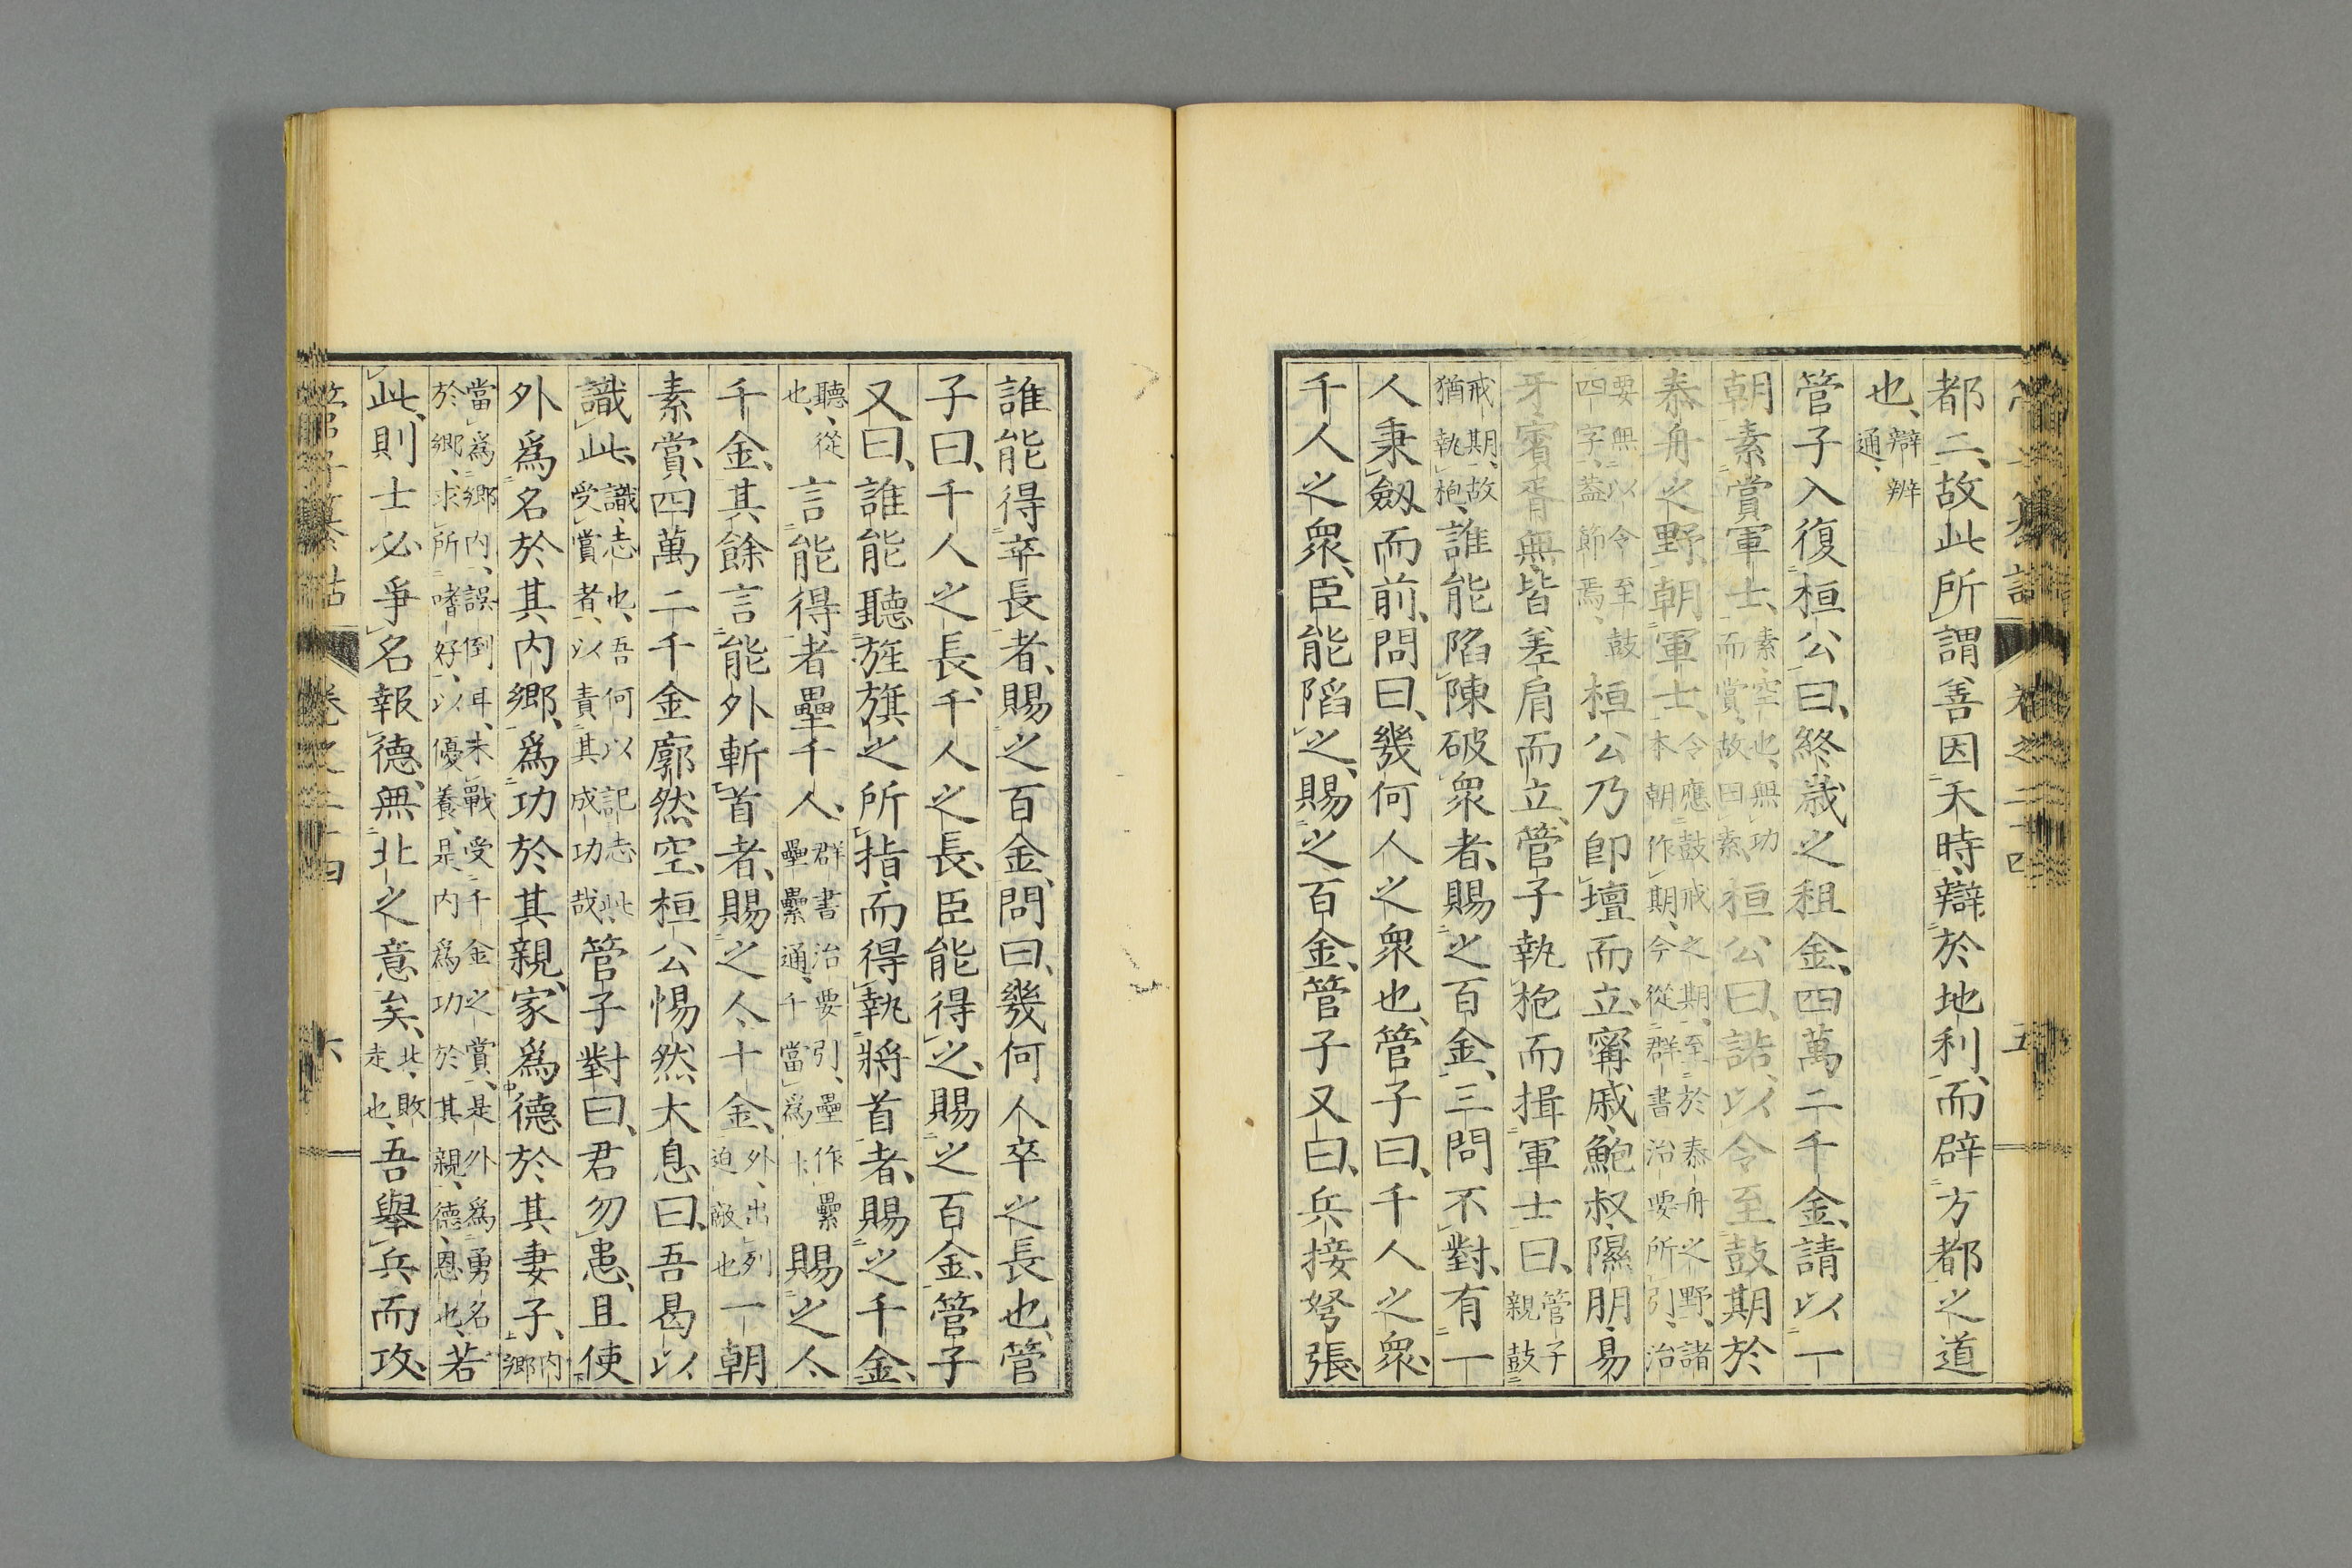 都二、故此所謂善因天時、辯於地利、而辟方都之道
也、辯辨通、
管子入復桓公曰、終歲之租金、四萬二千金、請以一
朝素賞軍士、素、空也、無功而賞、故曰素、桓公曰、諾、以令至鼓期於
泰舟之野、朝軍士、令應鼓戒之期、至於泰舟之野、諸本朝作期、今從群書治要所引、治
要無以令至鼓四字、蓋節焉、桓公乃卽壇而立、甯戚鮑叔隰朋易
牙賓胥無、皆差肩而立、管子執枹而揖軍士曰、管子親鼓
戒期、故猶執枹、誰能陷陳破衆者、賜之百金、三問不對、有一
人秉劔而前、問曰、幾何人之衆也、管子曰、千人之衆、
千人之衆、臣能陷之、賜之百金、管子又曰、兵接弩張、
誰能得卒長者、賜之百金、問曰、幾何人卒之長也、管
子曰、千人之長、千人之長、臣能得之、賜之百金、管子
又曰、誰能聽旌旗之所指、而得執將首者、賜之千金、
聽、從也、言能得者壘千人、群書治要引、壘作纍壘纍通、千當爲十、賜之人
千金、其餘言能外斬首者、賜之人十金、外、出列迫敵也一朝
素賞、四萬二千金廓然空、桓公惕然大息曰、吾曷以
識此、識、志也、吾何以記志此受賞者、以責其成功哉管子對曰、君勿患、且使
外爲名於其內鄉、爲功於其親、家爲德於其妻子、內鄉
當爲鄉內、誤倒耳、未戰受千金之賞、是外爲勇名於鄉、求所嗜好、以優養、是內爲功於其親、德、恩也、若
此、則士必爭名報德、無北之意矣、北、敗走也、吾舉兵而攻、